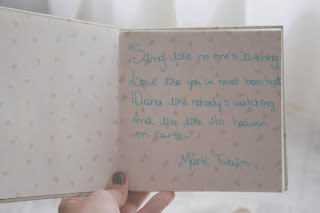 "Sing like no one's listening
Love like you've never been hurt
Dance like nobody's watching
And live like its heaven
on earth."
Mark Twain